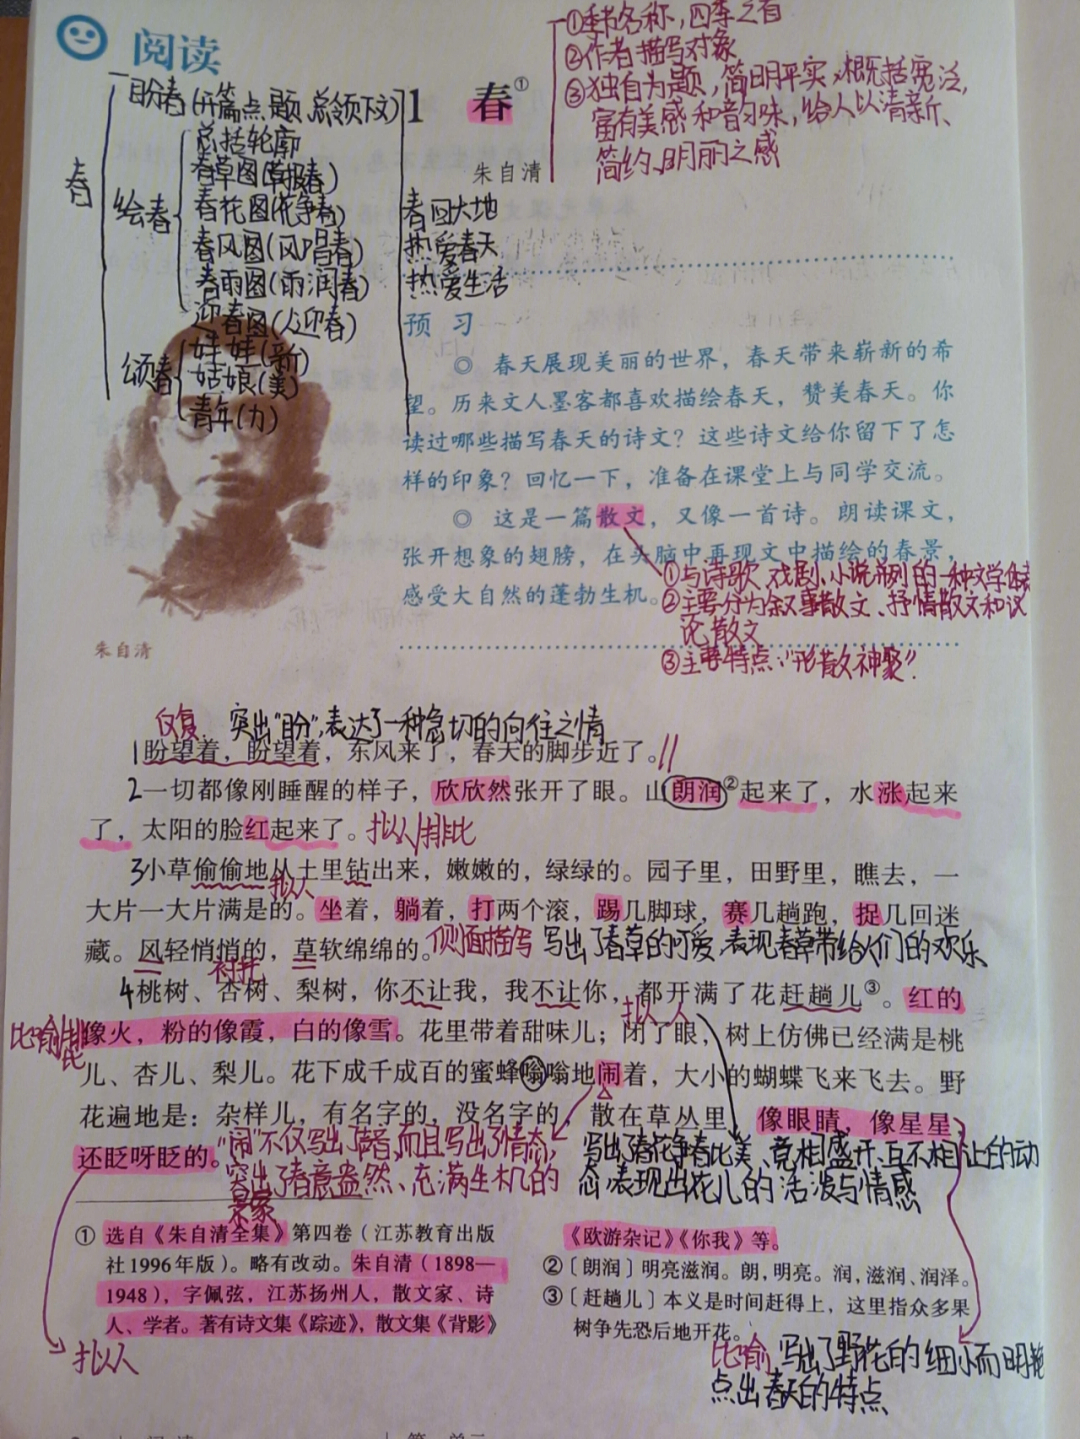 阅读
①季书名称，四季之首
②作者描写对象
③独自为题，简明平实，概括宽泛，
富有美感和音韵味，给人以清新、
简约、明丽之感
1 春①
朱自清
春
盼春(开篇点题,总领下文)
绘春
总括轮廓
春草图(草报春)
春花图(花争春)
春风图(风唱春)
春雨图(雨润春)
迎春图(人迎春)
颂春
娃娃(新)
姑娘(美)
青年(力)
春回大地
热爱春天
热爱生活
预 习
◎ 春天展现美丽的世界，春天带来崭新的希
望。历来文人墨客都喜欢描绘春天，赞美春天。你
读过哪些描写春天的诗文？这些诗文给你留下了怎
样的印象？回忆一下，准备在课堂上与同学交流。
◎ 这是一篇散文，又像一首诗。朗读课文，
张开想象的翅膀，在头脑中再现文中描绘的春景，
感受大自然的蓬勃生机。
①与诗歌、戏剧、小说并列的一种文学体裁
②主要分为叙事散文、抒情散文和议
论散文
③主要特点:"形散神聚"
朱自清
反复 突出"盼",表达了一种急切的向往之情
1盼望着，盼望着，东风来了，春天的脚步近了。
2一切都像刚睡醒的样子，欣欣然张开了眼。山朗润②起来了，水涨起来
了，太阳的脸红起来了。拟人 排比
3小草偷偷地从土里钻出来，嫩嫩的，绿绿的。园子里，田野里，瞧去，一
拟人
大片一大片满是的。坐着，躺着，打两个滚，踢几脚球，赛几趟跑，捉几回迷
藏。风轻悄悄的，草软绵绵的。侧面描写 写出了春草的可爱,表现春草带给人们的欢乐
衬托
4桃树、杏树、梨树，你不让我，我不让你，都开满了花赶趟儿③。红的
拟人
比喻 排比
像火，粉的像霞，白的像雪。花里带着甜味儿；闭了眼，树上仿佛已经满是桃
儿、杏儿、梨儿。花下成千成百的蜜蜂嗡嗡地闹着，大小的蝴蝶飞来飞去。野
花遍地是：杂样儿，有名字的，没名字的，散在草丛里，像眼睛，像星星，
还眨呀眨的。
"闹"不仅写出了声音,而且写出了情态,
突出了春意盎然、充满生机的
景象
写出了春花争春比美、竞相盛开、互不相让的动
态,表现出花儿的活泼与情感
① 选自《朱自清全集》第四卷（江苏教育出版
社1996年版）。略有改动。朱自清（1898—
1948），字佩弦，江苏扬州人，散文家、诗
人、学者。著有诗文集《踪迹》，散文集《背影》
《欧游杂记》《你我》等。
②〔朗润〕明亮滋润。朗，明亮。润，滋润、润泽。
③〔赶趟儿〕本义是时间赶得上，这里指众多果
树争先恐后地开花。
拟人
比喻,写出了野花的细小而明艳
点出春天的特点